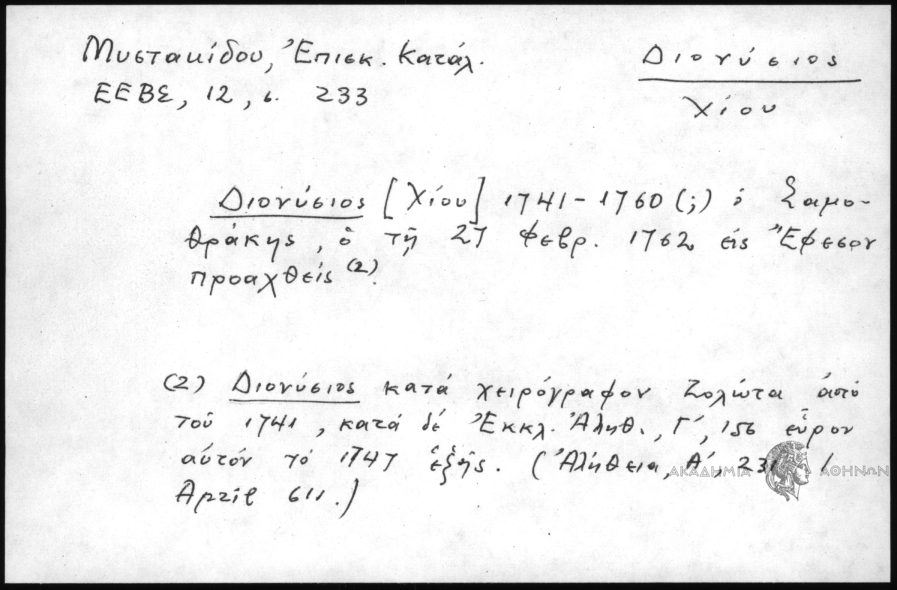 Μυστακίδου, Ἐπισκ. Κατάλ.
ΕΕΒΣ, 12, σ. 233
Διονύσιος
Χίου
Διονύσιος [Χίου] 1741-1760 (;) ὁ Σαμο-
θράκης, ὁ τῇ 27 Φεβρ. 1762 εἰς Ἔφεσον
προαχθείς (2).
(2) Διονύσιος κατά χειρόγραφον Ζολώτα ἀπό
τοῦ 1741, κατά δέ Ἐκκλ. Ἀληθ., Γ', 156 εὗρον
αὐτόν τό 1747 ἑξῆς. (Ἀλήθεια, Α', 231
611.)
ΑΚΑΔΗΜΙΑ ΑΘΗΝΩΝ